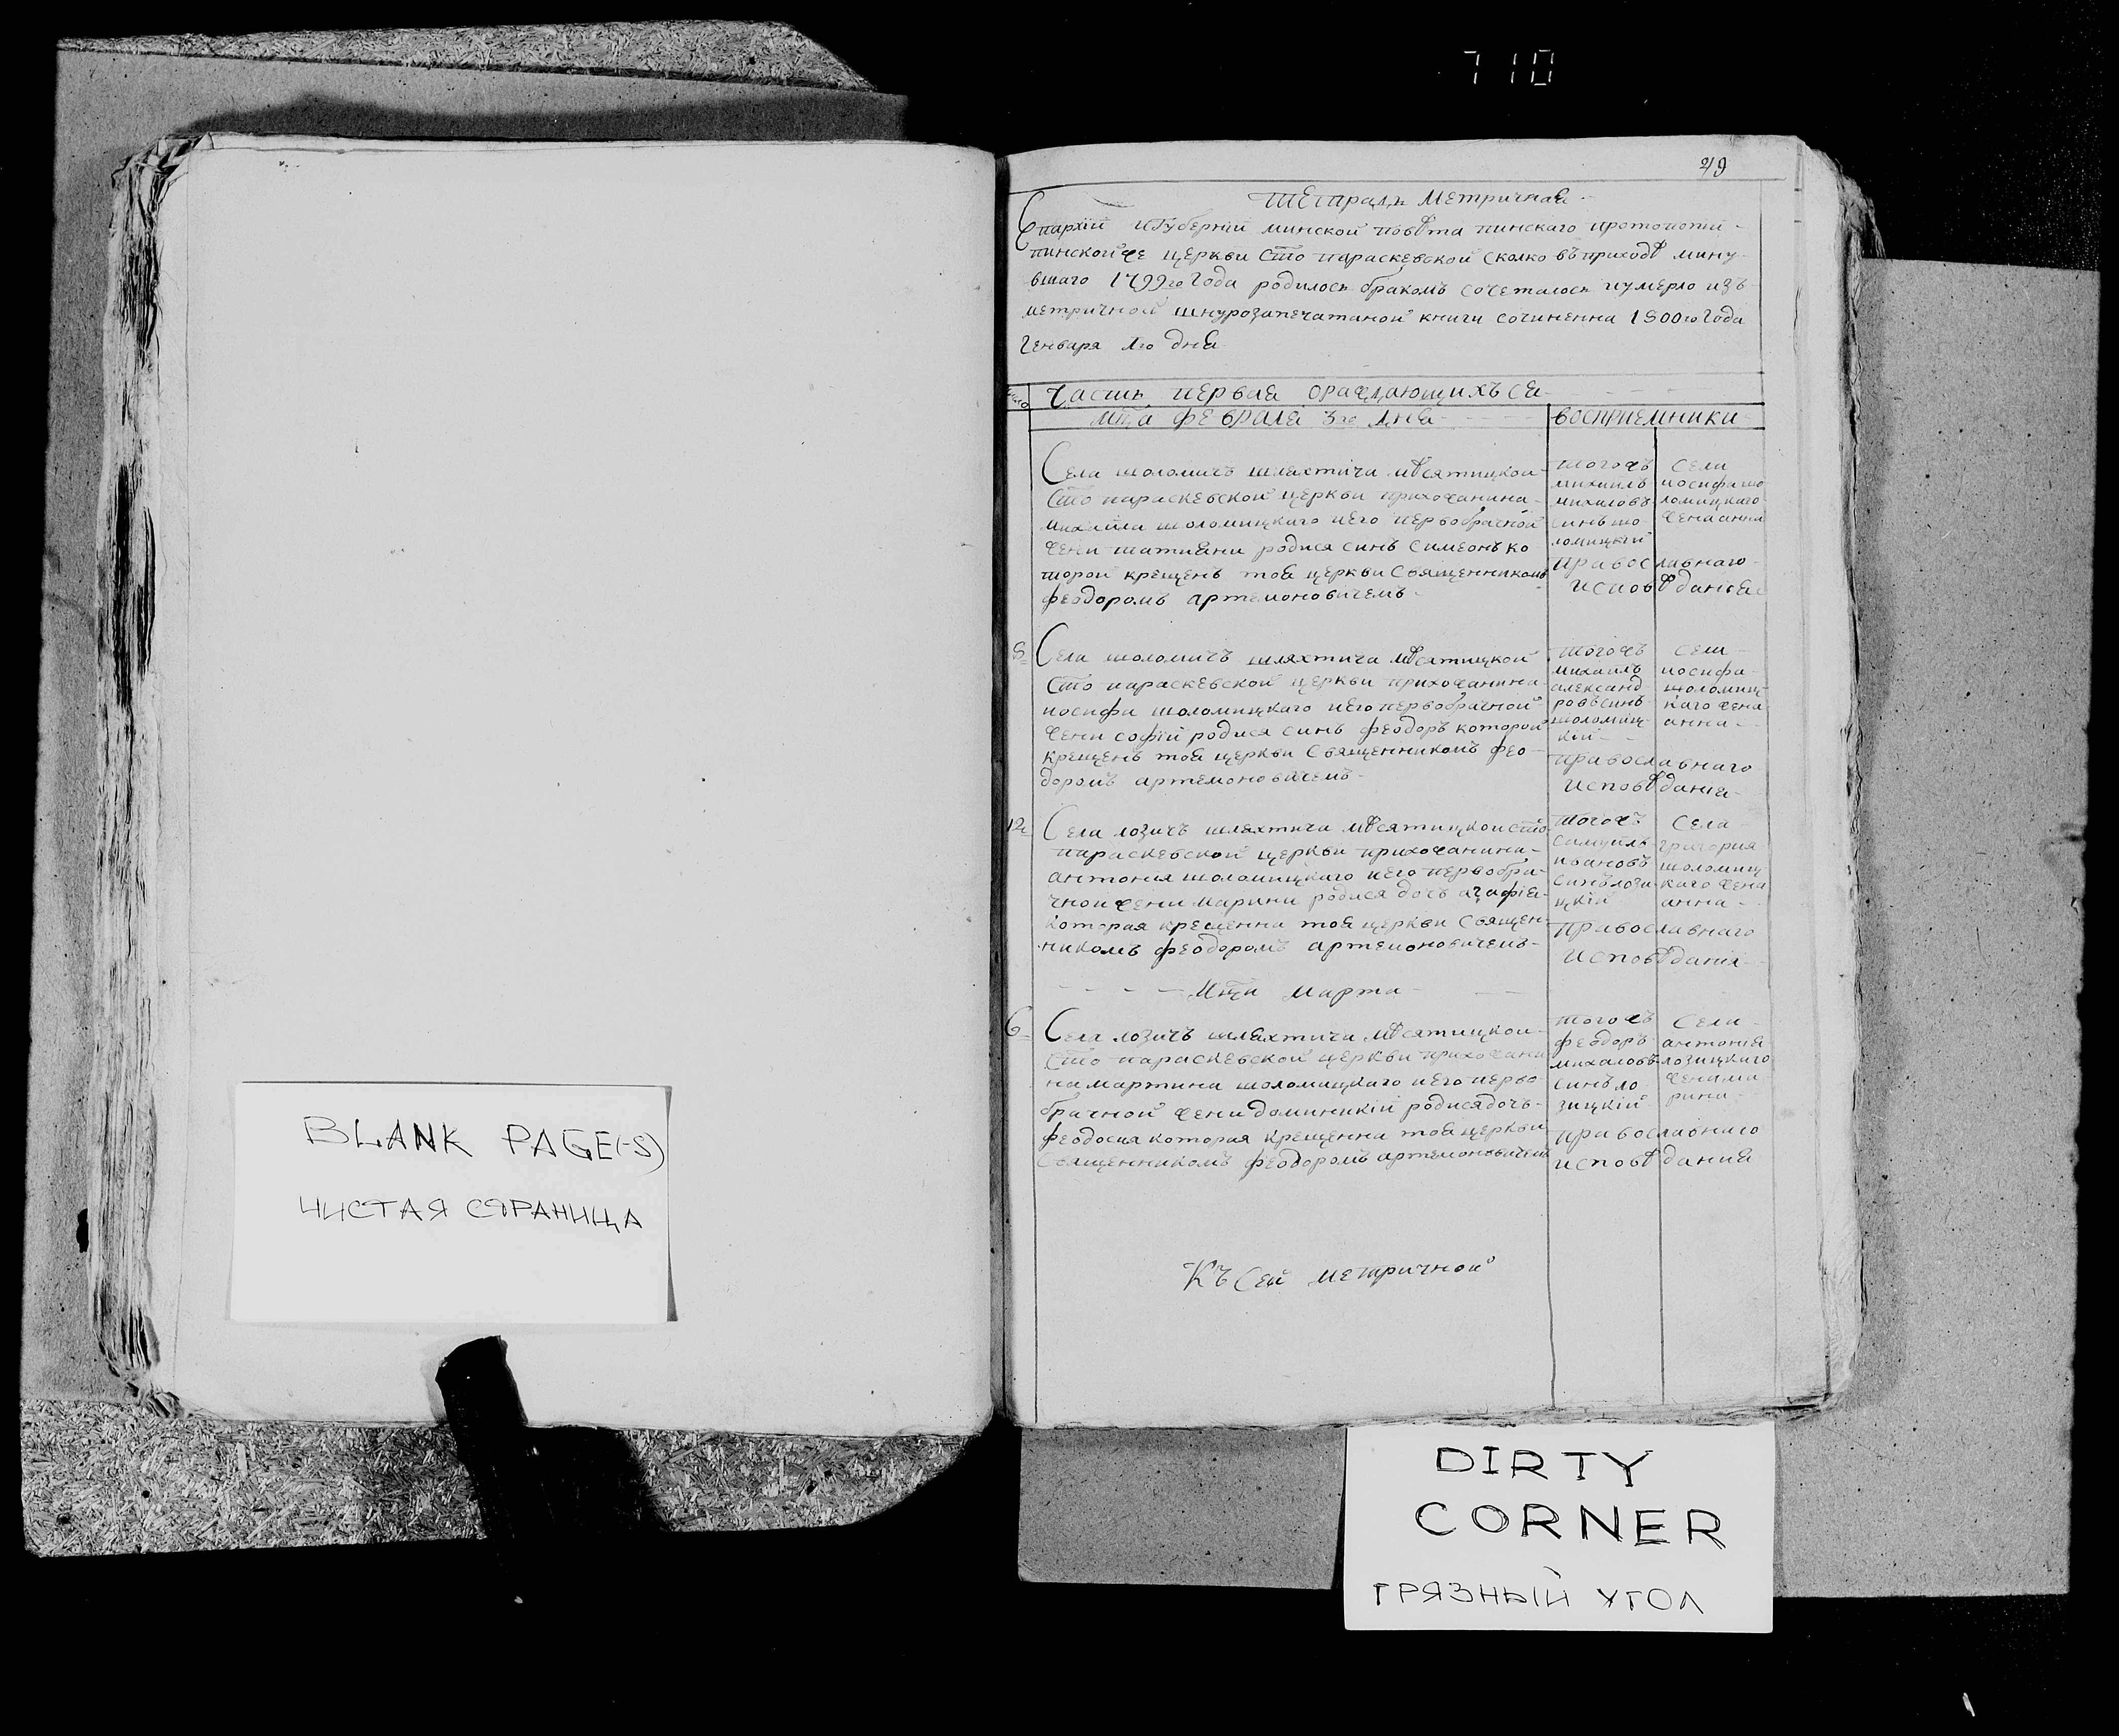 710
BLANK PAGE(-S)
ЧИСТАЯ СТРАНИЦА
49
Тетрадь Метричная
Епархіи и Губерніи минской повѣта пинскаго протопопіи
пинской же церкви Сто параскевской сколко въ приходѣ мину
вшаго 1799го Года родилось бракомъ сочеталось и умерло изъ
метричной шнурозапечатаной книги сочиненна 1800го Года
Генваря 1го дня
Часть первая о раждающихъся
Мца февраля 3го дня
восприемники
Села шоломичъ шляхтича мѣсятицкои
Сто параскевской церкви прихожанина
михаила шоломицкаго и его первобрачной
жени татияни родися синъ Симеонъ ко
торой крещенъ тоя церкви Священникомъ
феодоромъ артемоновичемъ
тогожъ
михаилъ
михаловъ
синъ шо
ломицкій
Села
иосифа шо
ломицкаго
жена анна
православнаго
исповѣдания
8 Села шоломичъ шляхтича мѣсятицкой
Сто параскевской церкви прихожанина
иосифа шоломицкаго и его первобрачной
жени софіи родися синъ феодоръ которой
крещенъ тоя церкви Священникомъ фео
доромъ артемоновичемъ
тогожъ
михаилъ
александ
ровъ синъ
шоломиц
кій
Села
иосифа
шоломиц
каго жена
анна
православнаго
исповѣдания
12 Села лозичъ шляхтича мѣсятицкои Сто
параскевской церкви прихожанина
антония шоломицкаго и его первобра
чной жени марини родися дочъ агафія
которая крещенна тоя церкви Священ
никомъ феодоромъ артемоновичемъ
тогожъ
Самуилъ
ивановъ
синъ лози
цкій
Села
григория
шоломиц
каго жена
анна
православнаго
исповѣдания
Мца Марта
6 Села лозичъ шляхтича мѣсятицкои
Сто параскевской церкви прихожани
на мартина шоломицкаго и его перво
брачной жени доминикіи родися дочъ
феодосия которая крещенна тоя церкви
Священникомъ феодоромъ артемоновичемъ
тогожъ
феодоръ
михаловъ
синъ ло
зицкій
Села
антония
лозицкаго
жена ма
рина
православнаго
исповѣдания
Къ Сей метричной
DIRTY
CORNER
ГРЯЗНЫЙ УГОЛ